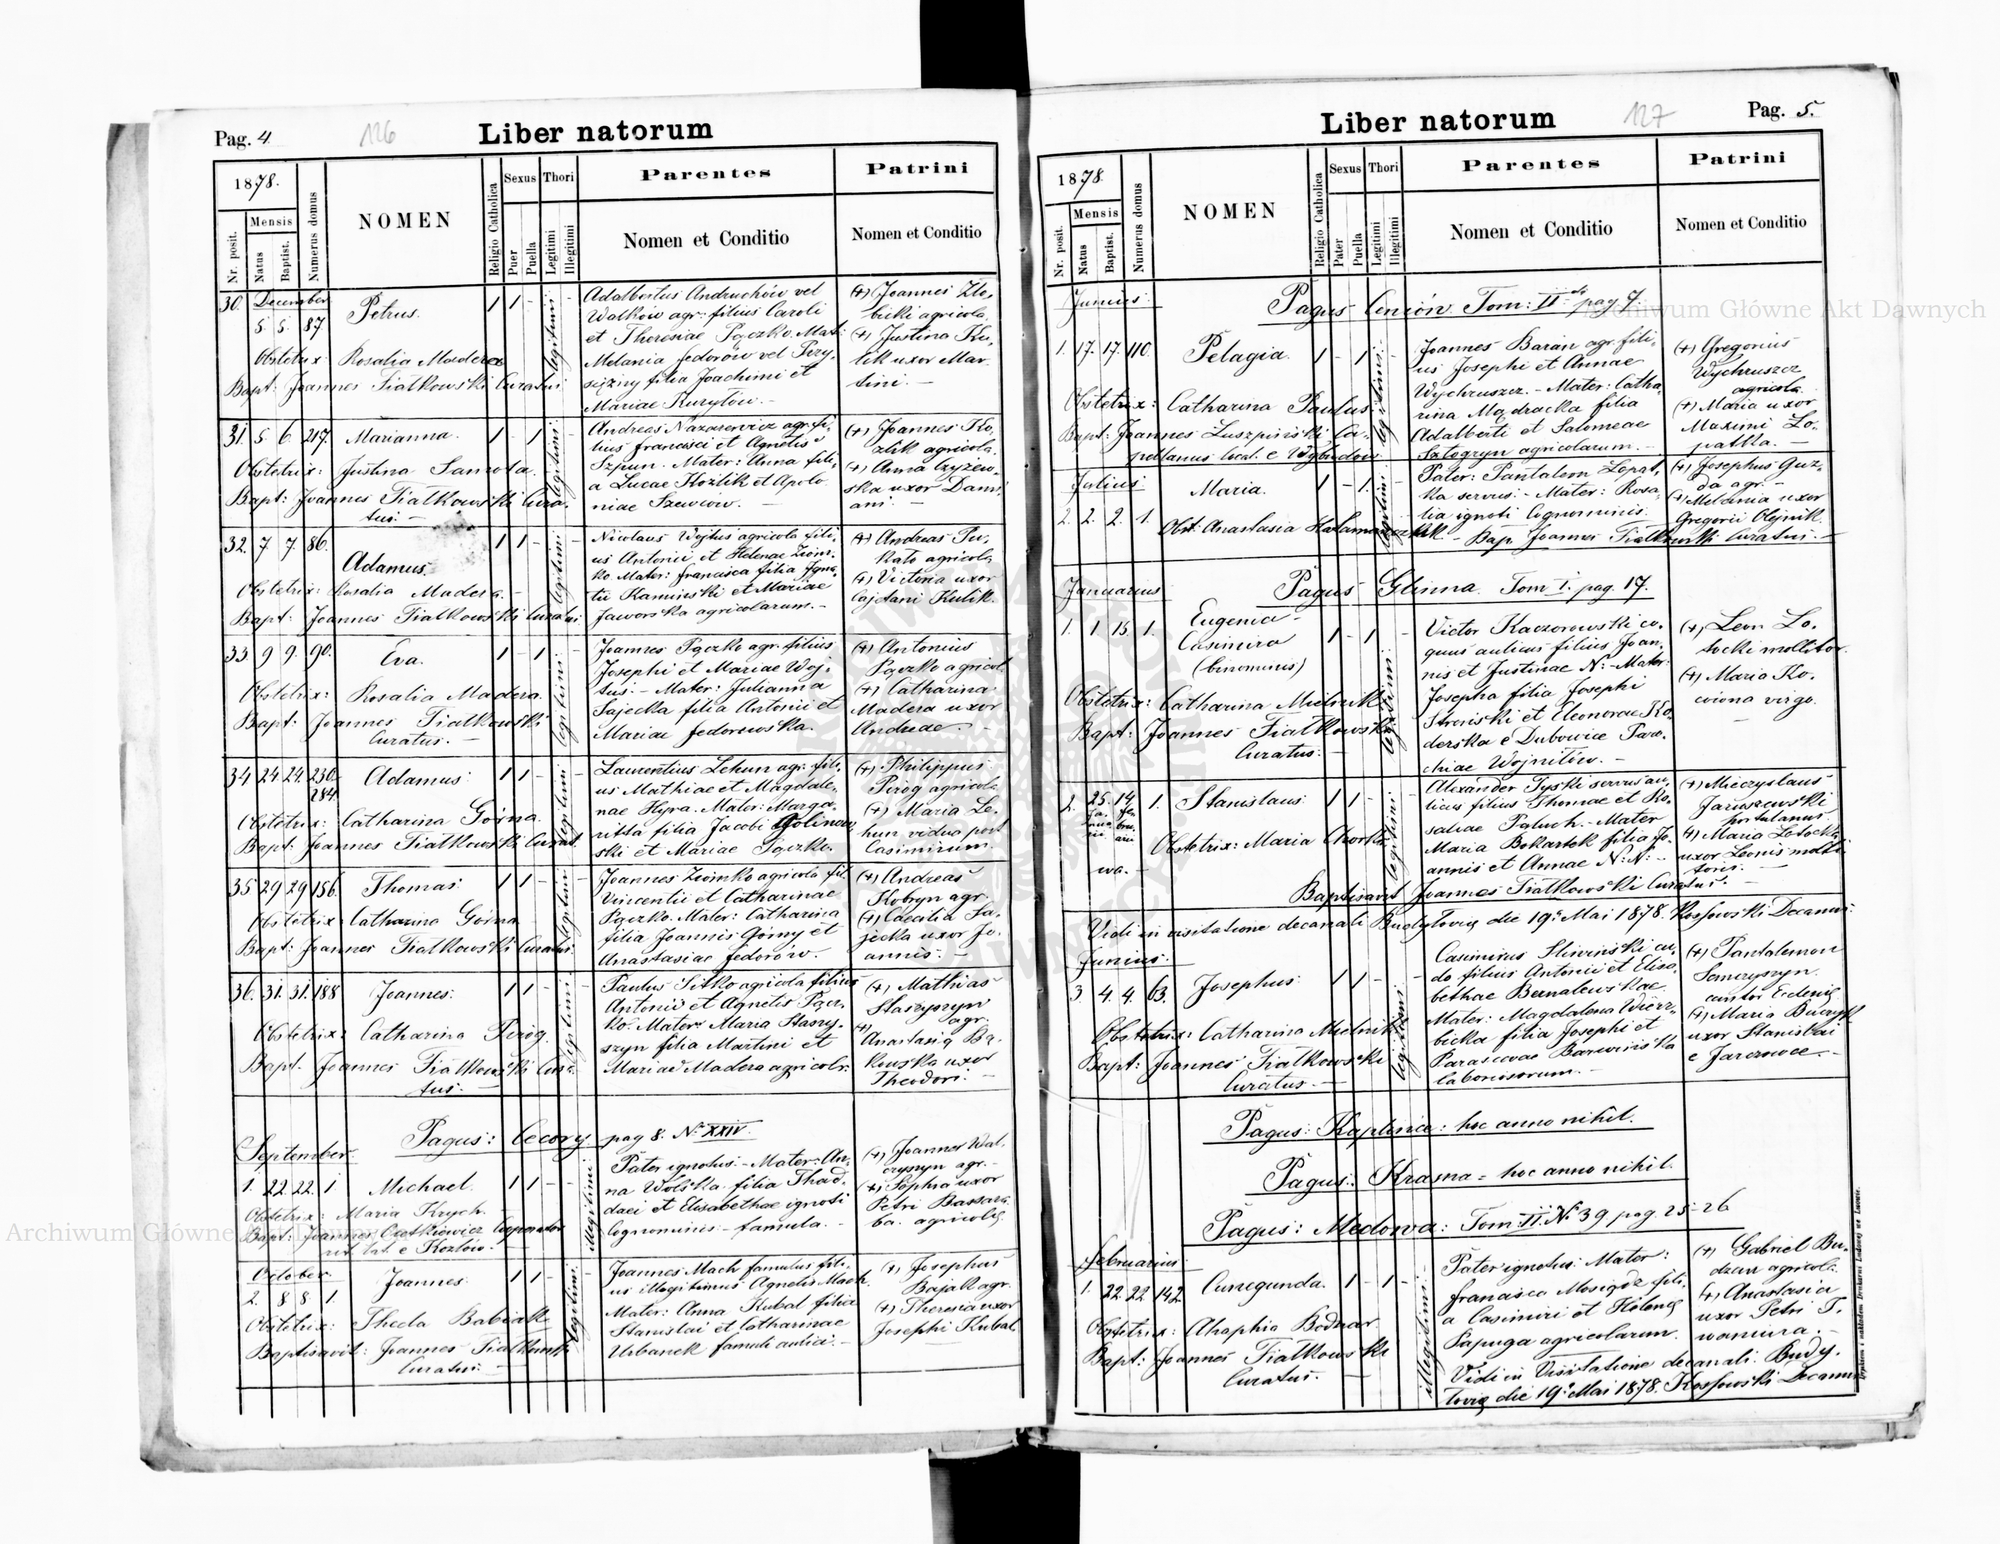 Pag. 4.
126
Liber natorum
1878.
Nr. posit.
Mensis
Natus
Baptist.
Numerus domus
NOMEN
Religio Catholica
Sexus
Puer
Puella
Thori
Legitimi
Illegitimi
Parentes
Nomen et Conditio
Patrini
Nomen et Conditio
30. December
5. 5. 87
Petrus.
1 1 - -
legitimi
Obstetrix Rosalia Madera
Bapt: Joannes Fiatkowski Curatus.
Adalbertus Andruchów vel
Walków agr: filius Caroli
et Theresiae Pączko. Mat:
Melania fedorów vel
filia Joachimi et
Mariae Kurytów. -
(+) Joannes Zło-
bicki agricola.
(+) Justina Ku-
lik uxor Mar-
tini. -
31. 5. 6. 217. Marianna. 1 - 1 -
legitimi
Obstetrix: Justina Samota.
Bapt: Joannes Fiatkowski Cura-
tus. -
Andreas Nazarewicz agr. fi-
lius francisci et Agnetis
Szpun. Mater: Anna fili-
a Lucae Kozlik et Apolo-
niae Szewców. -
(+) Joannes Ko-
zlik agricola.
(+) Anna Czyżew-
ska uxor Dami-
ani. -
32. 7 7 86. Adamus. 1 1 - -
legitimi
Obstetrix: Rosalia Madera. -
Bapt: Joannes Fiatkowski Curatus.
Nicolaus Wojtus agricola fili-
us Antonii et Helenae Ziom-
ko. Mater: francisca filia Igna-
tii Kamiński et Mariae
Jaworska agricolarum. -
(+) Andreas
agricola
(+) Victoria uxor
Cajetani Kulik.
33. 9 9. 90. Eva. 1 - 1 -
legitimi
Obstetrix: Rosalia Madera.
Bapt: Joannes Fiatkowski
Curatus. -
Joannes Pączko agr. filius
Josephi et Mariae Woj-
tus. - Mater: Julianna
Sajecka filia Antonii et
Mariae fedorowska.
(+) Antonius
Pączko agricol.
(+) Catharina
Madera uxor
Andreae. -
34 24. 24. 230. Adamus. 1 1 - -
284.
legitimi
Obstetrix: Catharina Górna.
Bapt: Joannes Fiatkowski Curat.
Laurentius Lehun agr. fili-
us Mathiae et Magdale-
nae Hyra. Mater: Marga-
ritta filia Jacobi Golinow-
ski et Mariae Pączko.
(+) Philippus
Pirog agricola
(+) Maria Le-
hun vidua post
Casimirum.
35 29 29 156. Thomas. 1 1 - -
legitimi
Obstetrix: Catharina Górna
Bapt: Joannes Fiatkowski Curatus.
Joannes Ziomko agricola fil.
Vincentii et Catharinae
Pączko. Mater: Catharina
filia Joannis Górny et
Anastasiae fedorów. -
(+) Andreas
Kobryn agr.
(+) Caecilia Sa-
jecka uxor Jo-
annis. -
36. 31. 31. 188 Joannes. 1 1 - -
legitimi
Obstetrix: Catharina Pirog.
Bapt. Joannes Fiatkowski Cura-
tus. -
Paulus Sitko agricola filius
Antonii et Agnetis Pącz-
ko. Mater: Maria Staszy-
szyn filia Martini et
Mariae Madera agricolr.
(+) Mathias
Staszyszyn
agr.
(+)
Anastasia Bą-
kowska uxor
Theodori. -
Pagus: Cecory pag 8. No XXIV.
September.
1. 22. 22. 1 Michael. 1 1 - -
illegitimi
Obstetrix: Maria Krych. -
Bapt: Joannes Cooperator
rit. lat. e Kozłów. -
Pater ignotus. - Mater: An-
na Wolska filia Thad-
daei et Elisabethae ignoti
Cognominis - famula. -
(+) Joannes Wal-
czyszyn agr. -
(+) Sophia uxor
Petri Bassara-
ba. agricolae.
October.
2. 8 8. 1. Joannes. 1 1 - -
legitimi
Obstetrix: Thecla Babiak
Baptisavit: Joannes Fiatkowski
Curatus. -
Joannes Mach famulus fili-
us illegitimus Agnetis Mach
Mater: Anna Kubal filia
Stanislai et Catharinae
Urbanek famuli aulici. -
(+) Josephus
Bajak agr.
(+) Theresia uxor
Josephi Kubal
Liber natorum
127
Pag. 5.
1878.
Nr. posit.
Mensis
Natus
Baptist.
Numerus domus
NOMEN
Religio Catholica
Sexus
Pater
Puella
Thori
Legitimi
Illegitimi
Parentes
Nomen et Conditio
Patrini
Nomen et Conditio
Junius.
Pagus Ceniów. Tom: II do pag 7.
1. 17. 17. 110. Pelagia. 1 - 1 -
legitimi
Obstetrix: Catharina Paulus.
Bapt: Joannes Łuszpiński Ca-
pellanus local. e Wybudów
Joannes Baran agr. fili-
us Josephi et Annae
Wychruszcz. - Mater: Catha-
rina Mądracka filia
Adalberti et Salomeae
Sztogryn agricolarum. -
(+) Gregorius
Wychruszcz
agricola
(+) Maria uxor
Maximi Ło-
patka. -
Julius
2. 2. 2. 1. Maria. 1 - 1. -
legitimi
Obst: Anastasia - Bap Joannes Fiatkowski Curatus. -
Pater: Pantaleon Łopat-
ka servus. - Mater: Rosa-
lia ignoti Cognominis.
(+) Josephus Guz-
da agr. -
(+) Melania uxor
Gregorii Olejnik.
Januarius
Pagus Glinna. Tom I. pag. 17.
1. 1 15. 1. Eugenia-
Casimira
(binominis)
1 - 1 -
legitimi
Obstetrix: Catharina Mielnik
Bapt: Joannes Fiatkowski
Curatus. -
Victor Kaczorowski co-
quus aulicus filius Joan-
nis et Justinae N: - Mater:
Josepha filia Josephi
Stroński et Eleonorae Ko-
derska e Dubowice Paro-
chiae Wojniłów. -
(+) Leon Lo-
tocki molitor.
(+) Maria Ko-
ciona virgo.
-
2. 25. 14 1. Stanislaus. 1 1 - -
Ja- fe-
nua- bru-
rii arii
legitimi
Obstetrix: Maria Chorko-
wa. -
Baptisavit Joannes Fiatkowski Curatus. -
Alexander Tyski servus au-
licus filius Thomae et Ro-
saliae Paluch. - Mater
Maria Bekartek filia Jo-
annis et Annae N: N: -
(+) Mieczyslaus
Jaruszewski
portulanus.
(+) Maria Lotocka
uxor Leonis moli-
toris. -
Vidi in visitatione decanali Budytoviae die 19. Mai 1878. Kossowski Decanus.
Junius.
3. 4. 4. 63. Josephus. 1 1 - -
legitimi
Obstetrix: Catharina Mielnik
Bapt: Joannes Fiatkowski
Curatus. -
Casimirus Śliwiński cu-
do filius Antonii et Elisa-
bethae Bernatowska.
Mater: Magdalena Wierz-
bicka filia Josephi et
Parascevae Barwińska
laboriosorum. -
(+) Pantalemon
Semczyszyn
cantor Ecclesiae
(+) Maria
uxor Stanislai
e Jarczowce. -
Pagus: Kaplińce: hoc anno nihil.
Pagus: Krasna = hoc anno nihil.
Pagus: Medowa: Tom: II. No 39 pag. 25-26
februarius.
1. 22. 22 142. Cunegunda. 1 - 1 -
illegitimi
Obstetrix: Ahaphia Bodnar
Bapt: Joannes Fiatkowski
Curatus. -
Pater ignotus: Mater:
francisca Mosigdz fili-
a Casimiri et Helenae
Papuga agricolarum.
(+) Gabriel Bu-
dzan agricol.
(+) Anastasia
uxor Petri
-
Vidi in Visitatione decanali. Budy-
toviae die 19. Mai 1878. Kossowski Decanus
Drukiem i nakładem Drukarni Ludowej we Lwowie.
Archiwum Główne Akt Dawnych
Archiwum Główne Akt Dawnych